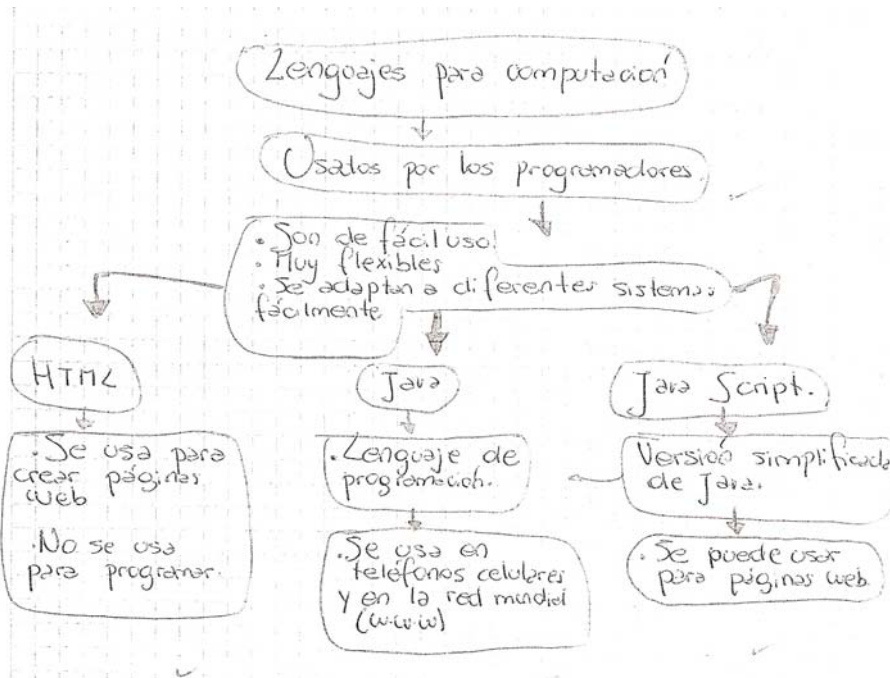 Lenguajes para computación
Usados por los programadores.
. Son de fácil uso!
. Muy flexibles
. Se adaptan a diferentes sistemas
fácilmente
HTML
Java
Java Script.
. Se usa para
crear páginas
web
. No se usa
para programar.
. Lenguaje de
programación.
. Se usa en
teléfonos celulares
y en la red mundial
(w.w.w)
Versión simplificada
de Java.
. Se puede usar
para páginas web